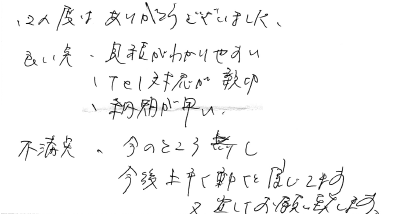 この度はありがとうございました。
良い点、見積がわかりやすい
、Tel対応が親切
、納期が早い、
不満点、今のところ無し
今後
又 お願い致します。